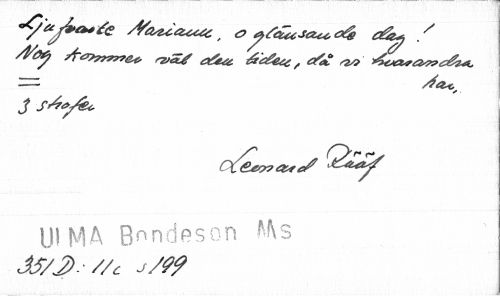 Ljufvaste Mariann, o glänsande dag!
Nog kommer väl den tiden, då vi hvarandra
har,
=
3 strofer
Leonard Rääf
ULMA Bondeson Ms
351 D: 11c s 199